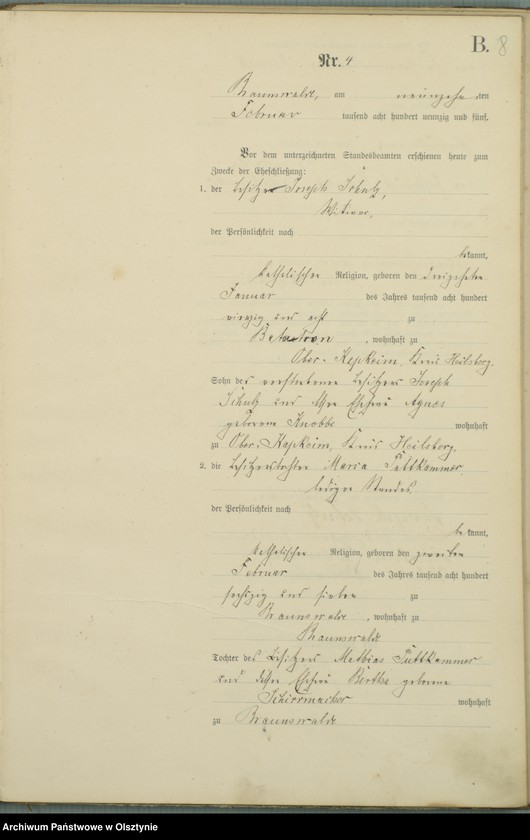 B. 8
Nr. 4
Braunswalde, am neunzehn ten
Februar tausend acht hundert neunzig und fünf.
Vor dem unterzeichneten Standesbeamten erschienen heute zum
Zwecke der Eheschließung:
1. der Besitzer Joseph Schulz,
Witwer,
der Persönlichkeit nach
bekannt,
katholischer Religion, geboren den dreizehnten
Januar des Jahres tausend acht hundert
vierzig und acht zu
, wohnhaft zu
Ober-Kapkeim, Kreis Heilsberg.
Sohn des verstorbenen Besitzers Joseph
Schulz und dessen Ehefrau Agnes
geborene Knobbe wohnhaft
zu Ober-Kapkeim, Kreis Heilsberg.
2. die Besitzerstochter Maria Puttkammer,
ledigen Standes,
der Persönlichkeit nach
bekannt,
katholischer Religion, geboren den zweiten
Februar des Jahres tausend acht hundert
sechszig und sieben zu
Braunswalde, wohnhaft zu
Braunswalde
Tochter des Besitzers Mathias Puttkammer
und dessen Ehefrau Bertha geborene
Schirrmacher wohnhaft
zu Braunswalde
Archiwum Państwowe w Olsztynie